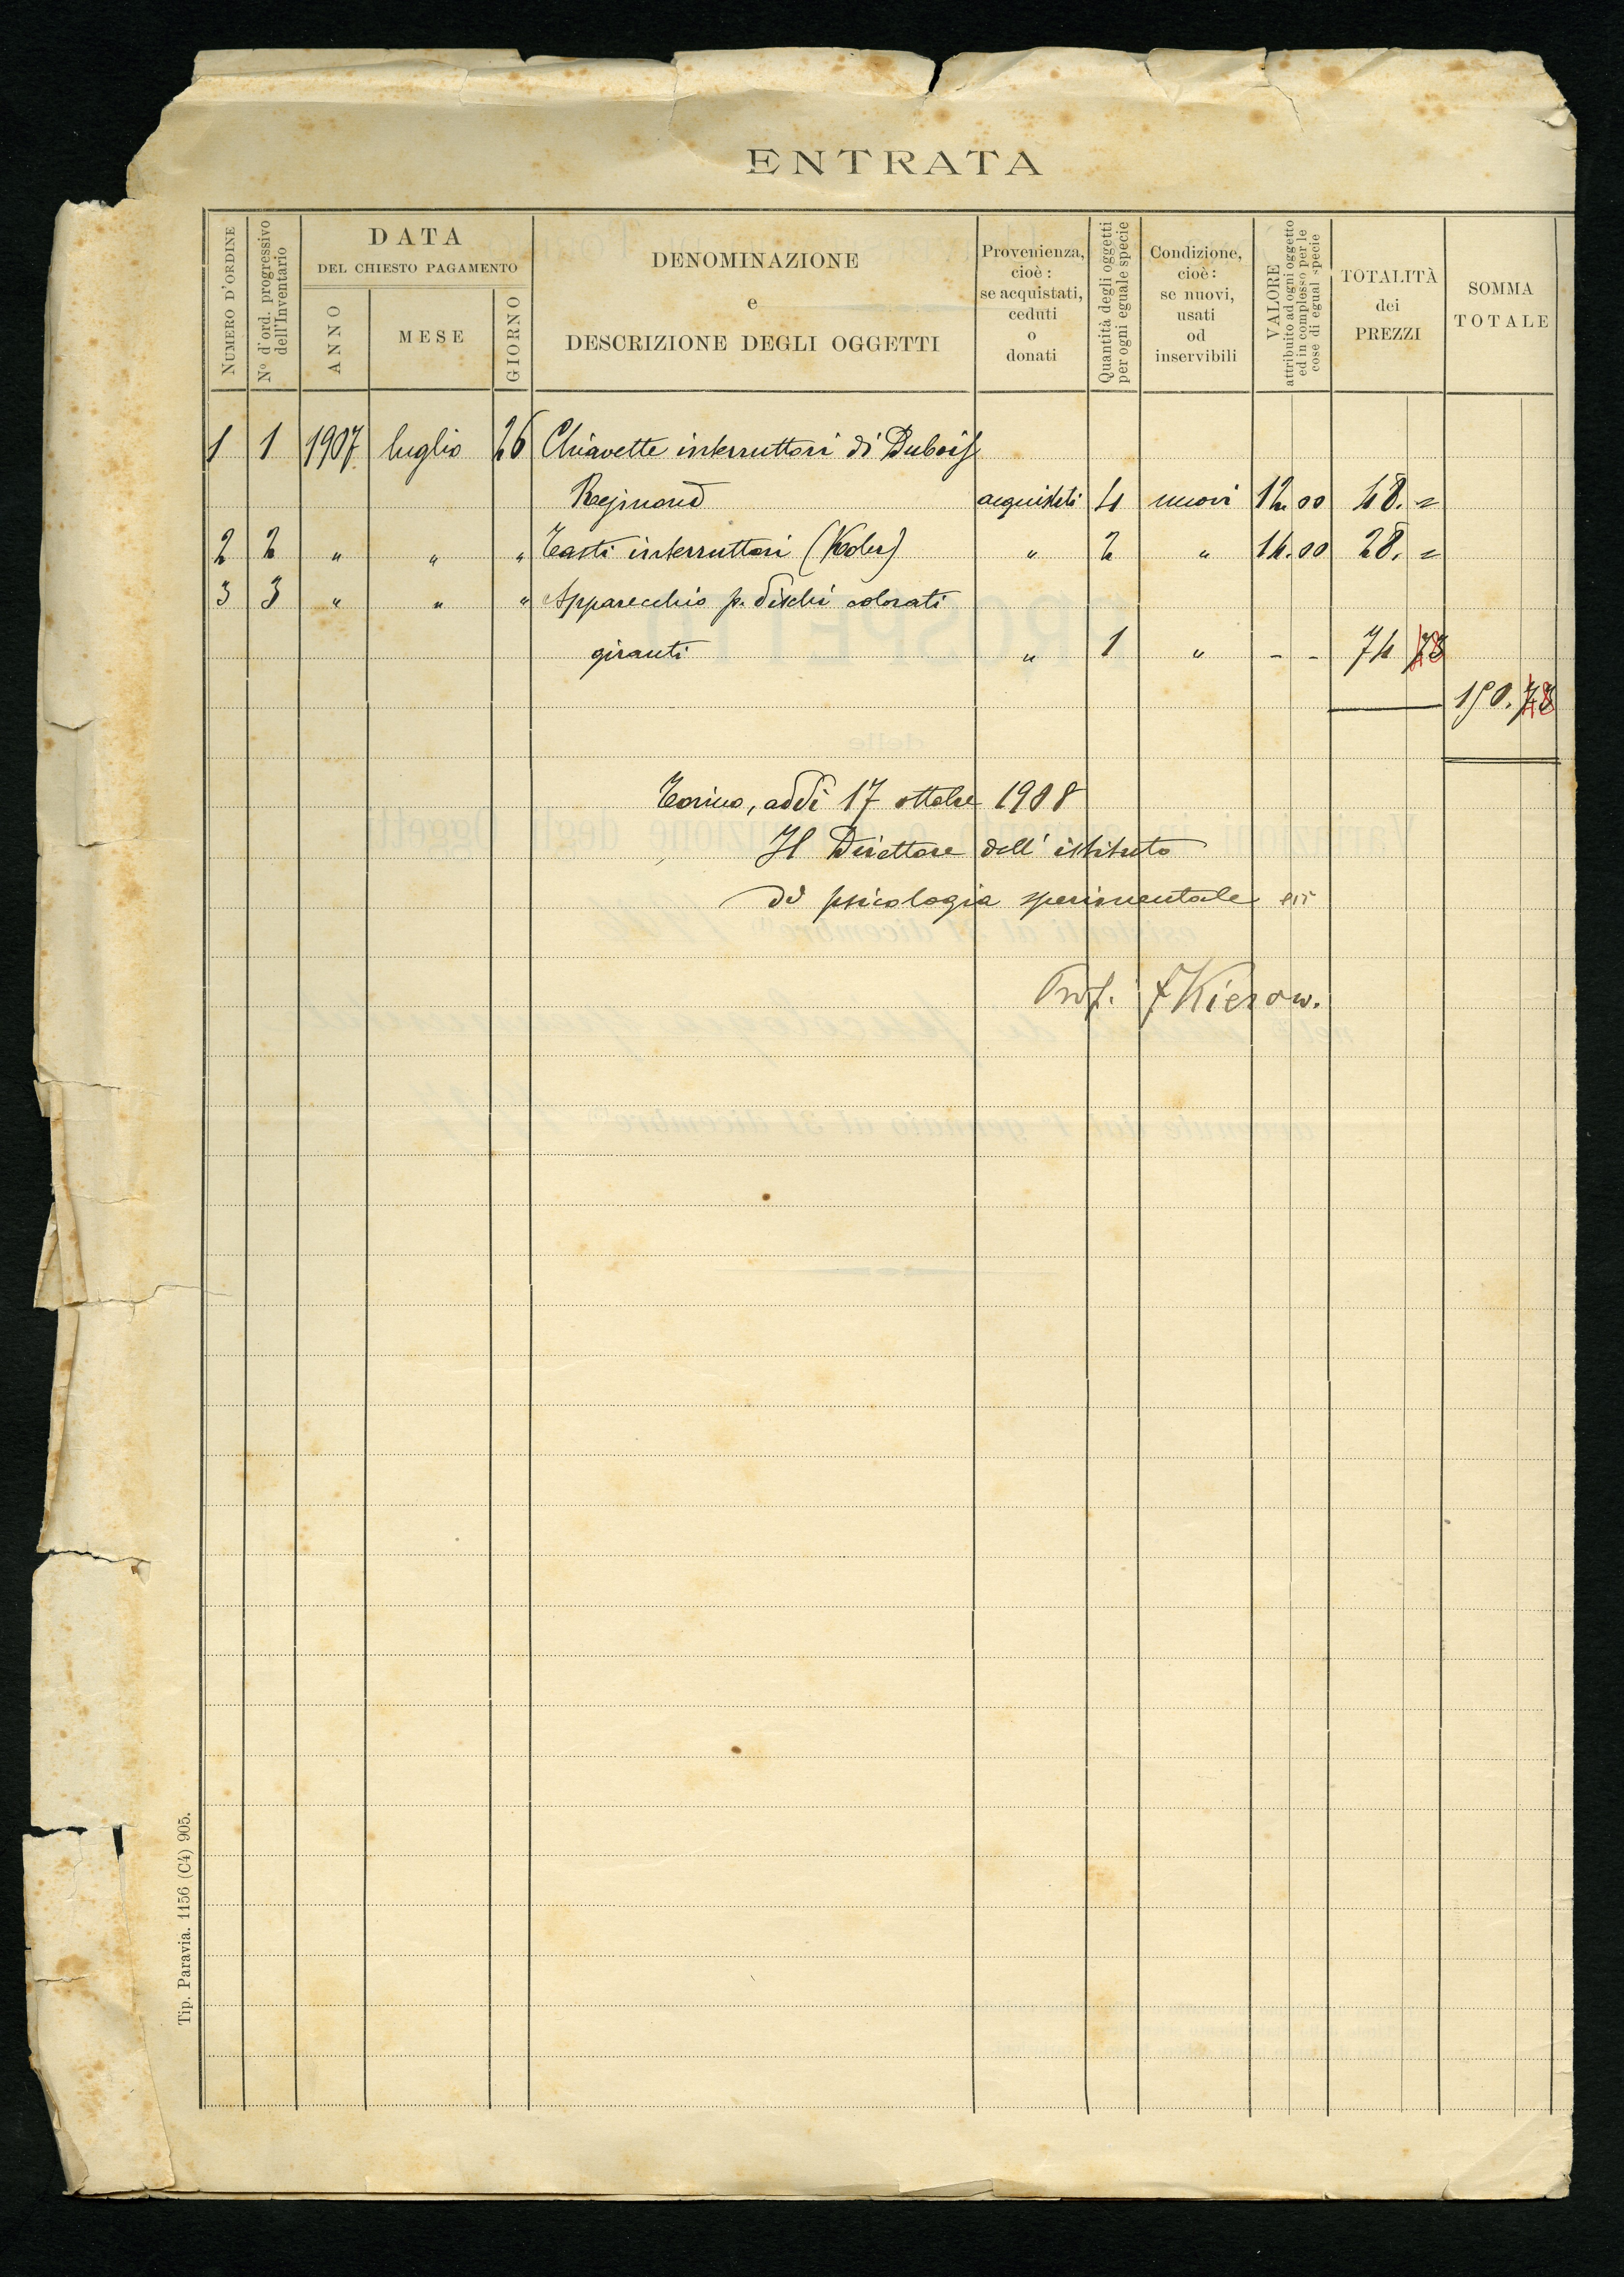 ENTRATA
NUMERO D'ORDINE
Nº d'ord. progressivo
dell'Inventario
DATA
DEL CHIESTO PAGAMENTO
ANNO
MESE
GIORNO
DENOMINAZIONE
e
DESCRIZIONE DEGLI OGGETTI
Provenienza,
cioè :
se acquistati,
ceduti
o
donati
Quantità degli oggetti
per ogni eguale specie
Condizione,
cioè:
se nuovi,
usati
od
inservibili
VALORE
attribuito ad ogni oggetto
ed in complesso per le
cose di egual specie
TOTALITÀ
dei
PREZZI
SOMMA
TOTALE
1 1 1907 luglio 26 Chiavette interruttori di Dubois
Reymond acquistati 4 nuovi 12.00 48. =
2 2 " " " Tasti interruttori " 2 " 14.00 28. =
3 3 " " " Apparecchio p. dischi colorati
giranti " 1 " - - 74
150.
Torino, addì 17 ottobre 1908
Il Direttore dell' istituto
di psicologia sperimentale
Prof. F Kiesow.
Tip. Paravia. 1156 (C4) 905.